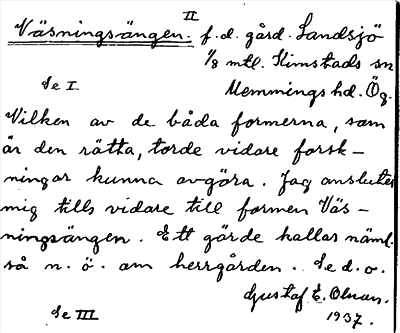 II
Väsningsängen. f.d. gård. Landsjö
1/8 mtl. Kimstads sn
Se I. Memmings hd. Ög.
Vilken av de båda formerna, som
är den rätta, torde vidare forsk-
ningar kunna avgöra. Jag ansluter
mig tills vidare till formen Väs-
ningsängen. Ett gärde kallas näml.
så n. ö. om herrgården. Se d. o.
Gustaf E. Olsson.
Se III 1937.